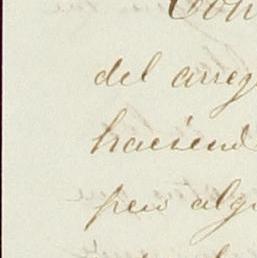 Con
del arreg
haciend
pero algu